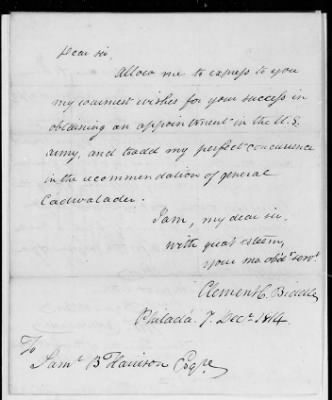 Dear sir,
Allow me to express to you
my warmest wishes for your success in
obtaining an appointment in the U.S.
army, and to add my perfect concurrence
in the recommendation of general
Cadwalader.
I am, my dear sir,
with great esteem,
your mo obdt servt
Clement C. Biddle
Philada. 7. Decr. 1814.
To
Saml B Harrison Esqre